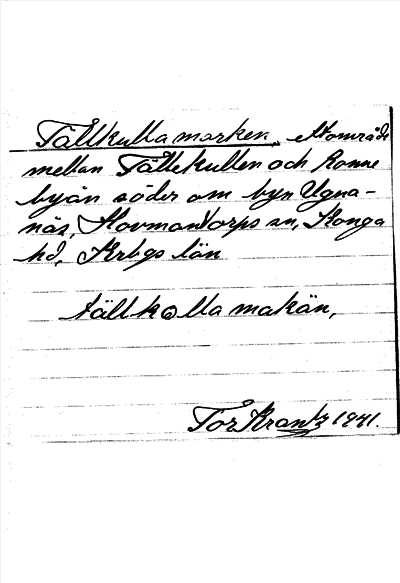 Tällkullamarken, ett område
mellan Tällekullen och Ronne
byån söder om byn Ugna-
näs, Hovmantorps sn, Konga
hd, Krbgs län
tällkɷlla makän,
Tor Krantz 1941.